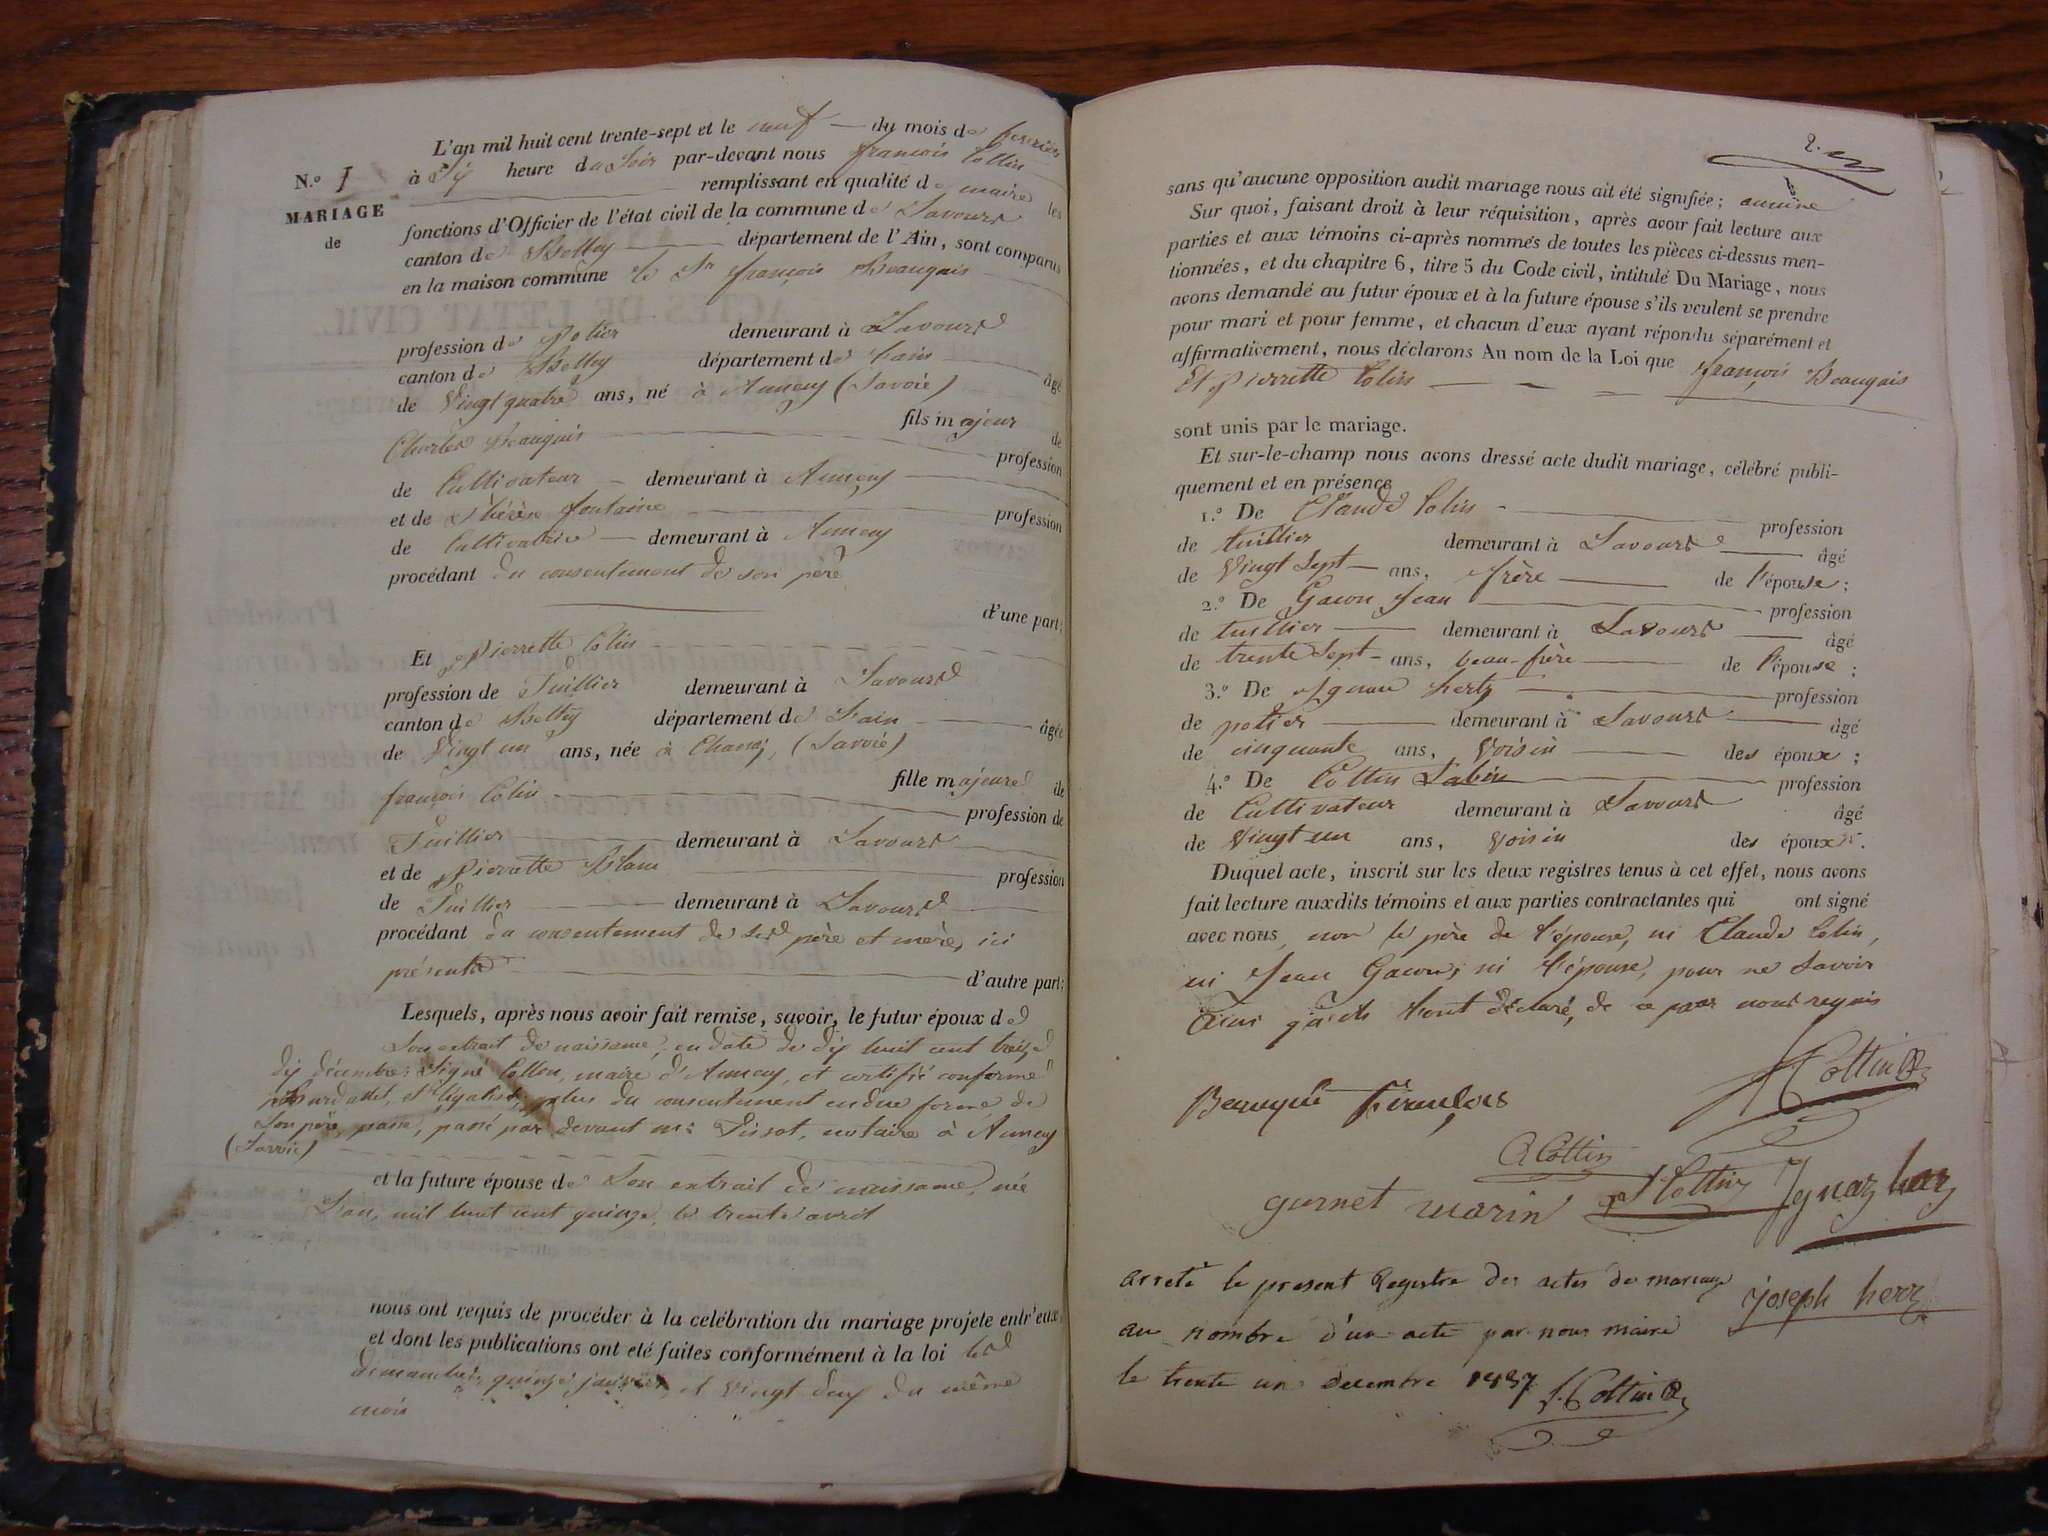 N.º 1
MARIAGE
de
L'an mil huit cent trente-sept et le neuf du mois de fevrier
à Six heure du Soir par-devant nous françois Cottin
remplissant en qualité de maire les
fonctions d'Officier de l'état civil de la commune de Savours
canton de Belley département de l'Ain, sont comparus
en la maison commune le Sr françois Beauquis
profession de Potier demeurant à Savours
canton de Belley département de l'ain âgé
de Vingt quatre ans, né à Annecy (Savoie)
fils majeur de
Charles Beauquis profession
de Cultivateur demeurant à Annecy
et de Thérèse fontaine profession
de Cultivatrice demeurant à Annecy
procédant du consentement de son père
d'une part;
Et Pierrette Colin
profession de Tuillier demeurant à Savours
canton de Belley département de l'ain âgée
de Vingt un ans, née à Chanaz, (Savoie)
fille majeure de
françois Colin profession de
Tuillier demeurant à Savours
et de Pierrette Blanc profession
de Tuillier demeurant à Savours
procédant du consentement de ses père et mère, ici
présents d'autre part;
Lesquels, après nous avoir fait remise, savoir, le futur époux de
Son extrait de naissance, en date de dix huit cent treize
dix décembre; Signé Collon, maire d'Annecy, et certifié conforme
légalisé, plus du consentement en due forme de
Son père, passé, passé par devant me Tissot, notaire à Annecy
(Savoie)
et la future épouse de Son extrait de naissance, née
L'an mil huit cent quinze, le trente avril
nous ont requis de procéder à la celébration du mariage projete entr'eux,
et dont les publications ont eté faites conformément à la loi les
dimanches quinze janvier, et Vingt deux du même
mois
2.
sans qu'aucune opposition audit mariage nous ait été signifiée; aucune
Sur quoi, faisant droit à leur réquisition, après avoir fait lecture aux
parties et aux témoins ci-après nommés de toutes les pièces ci-dessus men-
tionnées, et du chapitre 6, titre 5 du Code civil, intitulé Du Mariage, nous
avons demandé au futur époux et à la future épouse s'ils veulent se prendre
pour mari et pour femme, et chacun d'eux ayant répondu séparément et
affirmativement, nous déclarons Au nom de la Loi que françois Beauquis
Et Pierrette Colin
sont unis par le mariage.
Et sur-le-champ nous avons dressé acte dudit mariage, célébré publi-
quement et en présence
1.º De Claude Colin profession
de tuillier demeurant à Savours âgé
de Vingt Sept ans, frère de l'épouse;
2.º De Gacon Jean profession
de tuillier demeurant à Savours âgé
de trente Sept ans, beau-frère de l'épouse;
3.º De Ignace hertz profession
de potier demeurant à Savours âgé
de cinquante ans, Voisin des époux;
4.º De Cottin Sabin profession
de Cultivateur demeurant à Savours âgé
de Vingt un ans, Voisin des époux.
Duquel acte, inscrit sur les deux registres tenus à cet effet, nous avons
fait lecture auxdits témoins et aux parties contractantes qui ont signé
avec nous non le père de l'épouse, ni Claude Colin,
ni Jean Gacon, ni l'épouse, pour ne Savoir
ainsi qu'ils l'ont déclaré, de ce par nous requis
Cottin
Beauquis François
Cottin
gurnet marin S Cottin Ignaz herz
arreté le present Registre des actes de mariage
joseph herz
au nombre d'un acte par nous maire
le trente un decembre 1837
f. Cottin